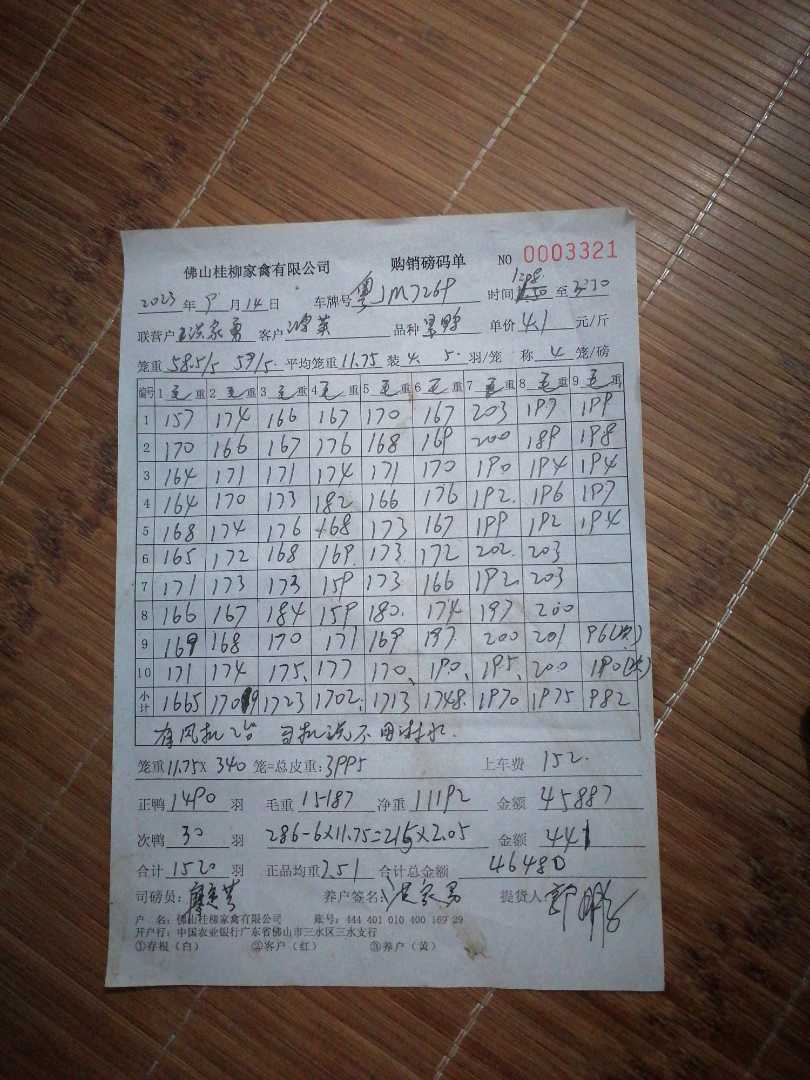 佛山桂柳家禽有限公司 购销磅码单 NO 0003321
2023 年 9 月 14 日 车牌号 粤JM7269 时间 至
联营户 洪家勇 客户 鸿英 品种 单价 4.1 元/斤
笼重 58.5/5 59/5 平均笼重 11.75 装 4. 5. 羽/笼 称 4 笼/磅
编号 1 毛 重 2 毛 重 3 毛 重 4 毛 重 5 毛 重 6 毛 重 7 毛 重 8 毛 重 9 毛 重
1 157 174 166 167 170 167 203 197 199
2 170 166 167 176 168 169 200 189 198
3 164 171 171 174 171 170 190 194 194
4 164 170 173 182 166 176 192 196 197
5 168 174 176 168 173 167 199 192 194
6 165 172 168 169 173 172 202 203
7 171 173 173 159 173 166 192 203
8 166 167 184 159 180 174 197 200
9 169 168 170 171 169 197 200 201 96(次)
10 171 174 175 177 170 190 195 200 190(次)
小计 1665 1709 1723 1702 1713 1748 1970 1975 982
有风机2台 司机说不用淋水.
笼重 11.75 X 340 笼=总皮重: 3995 上车费 152.
正鸭 1490 羽 毛重 15187 净重 11192 金额 45887
次鸭 30 羽 286-6×11.75=215×2.05 金额 441
合计 1520 羽 正品均重 7.51 合计总金额 46480
司磅员: 养户签名: 洪家勇 提货人
户 名: 佛山桂柳家禽有限公司 账号: 444 401 010 400 169 29
开户行: 中国农业银行广东省佛山市三水区三水支行
①存根(白) ②客户(红) ③养户(黄)